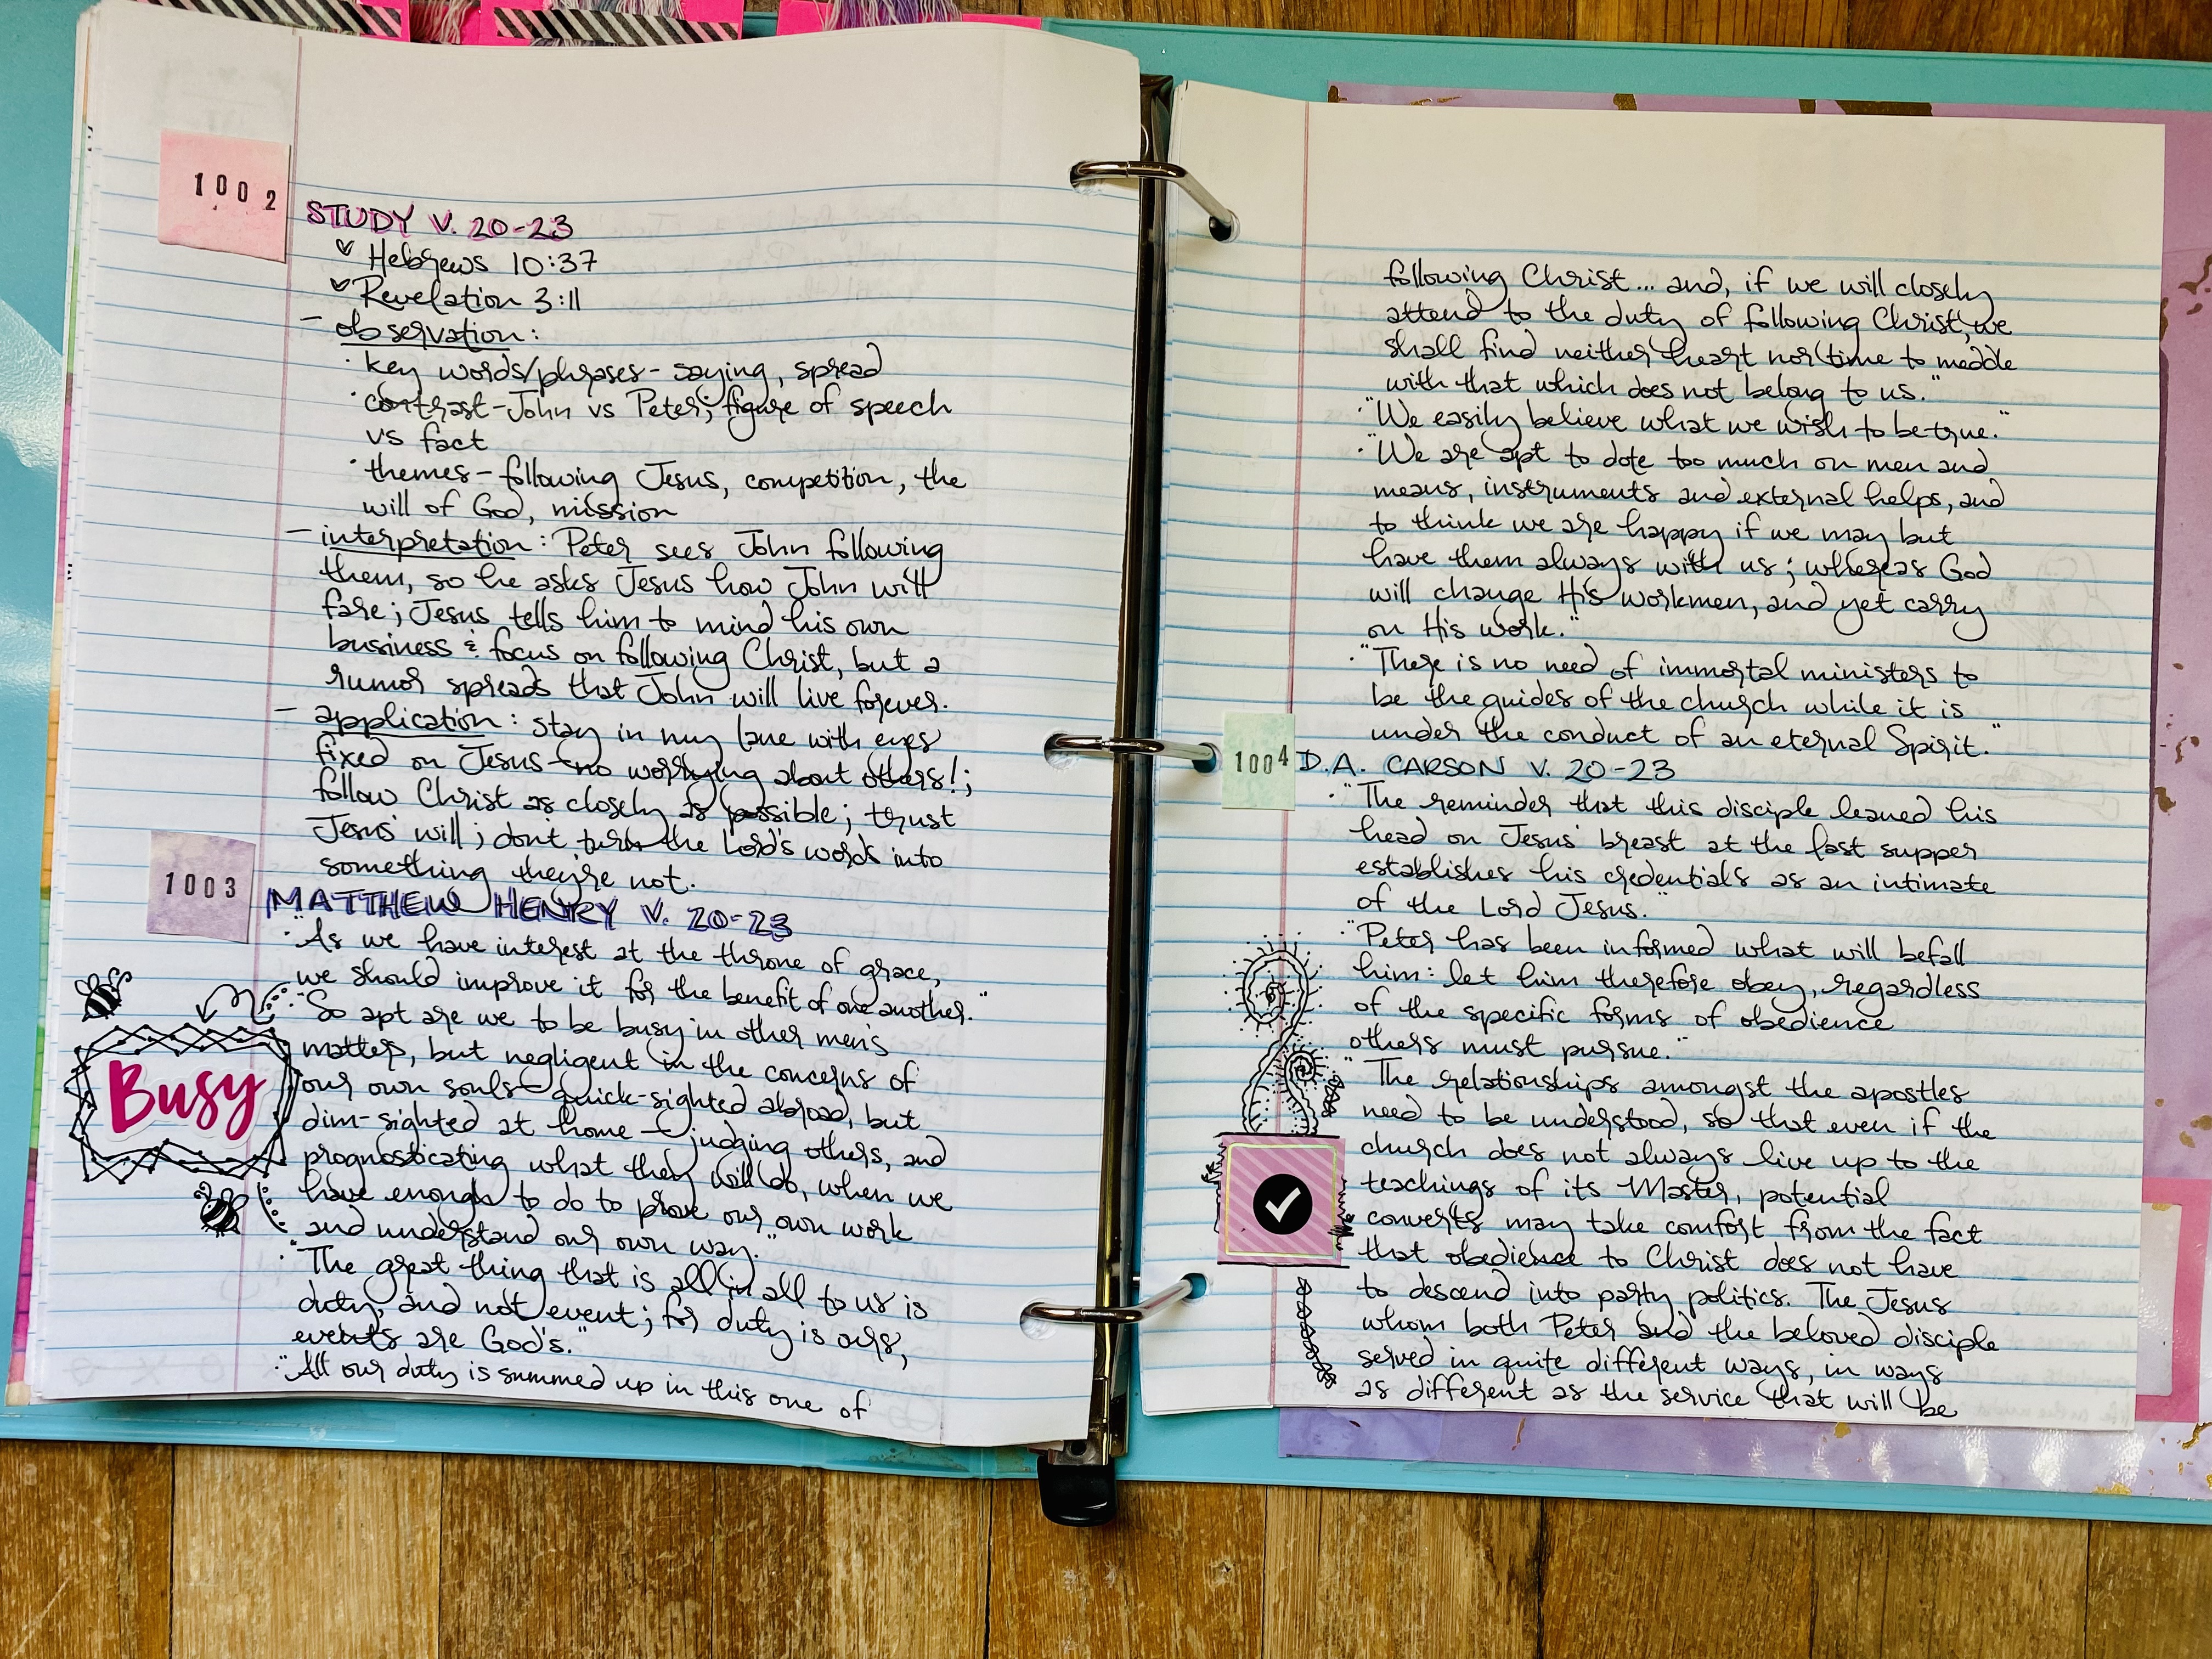 1002
STUDY V. 20-23
Hebrews 10:37
Revelation 3:11
- observation:
· key words/phrases - saying, spread
· contrast - John vs Peter; figure of speech
vs fact
· themes - following Jesus, competition, the
will of God, mission
- interpretation: Peter sees John following
them, so he asks Jesus how John will
fare; Jesus tells him to mind his own
business & focus on following Christ, but a
rumor spreads that John will live forever.
- application: stay in my lane with eyes
fixed on Jesus - no worrying about others!;
follow Christ as closely as possible; trust
Jesus' will; dont turn the Lord's words into
something they're not.
1003
MATTHEW HENRY V. 20-23
· "As we have interest at the throne of grace,
we should improve it for the benefit of one another."
· "So apt are we to be busy in other men's
matters, but negligent in the concerns of
our own souls - quick-sighted abroad, but
dim-sighted at home - judging others, and
prognosticating what they will do, when we
have enough to do to prove our own work
and understand our own way."
Busy
· "The great thing that is all in all to us is
duty, and not event; for duty is ours,
events are God's."
· "All our duty is summed up in this one of
following Christ... and, if we will closely
attend to the duty of following Christ, we
shall find neither heart nor time to meddle
with that which does not belong to us."
· "We easily believe what we wish to be true."
· "We are apt to dote too much on men and
means, instruments and external helps, and
to think we are happy if we may but
have them always with us; whereas God
will change His workmen, and yet carry
on His work."
· "There is no need of immortal ministers to
be the guides of the church while it is
under the conduct of an eternal Spirit."
1004
D.A. CARSON V. 20-23
· "The reminder that this disciple leaned his
head on Jesus' breast at the last supper
establishes his credentials as an intimate
of the Lord Jesus."
· "Peter has been informed what will befall
him: let him therefore obey, regardless
of the specific forms of obedience
others must pursue."
· "The relationships amongst the apostles
need to be understood, so that even if the
church does not always live up to the
teachings of its Master, potential
converts may take comfort from the fact
that obedience to Christ does not have
to descend into party politics. The Jesus
whom both Peter and the beloved disciple
served in quite different ways, in ways
as different as the service that will be